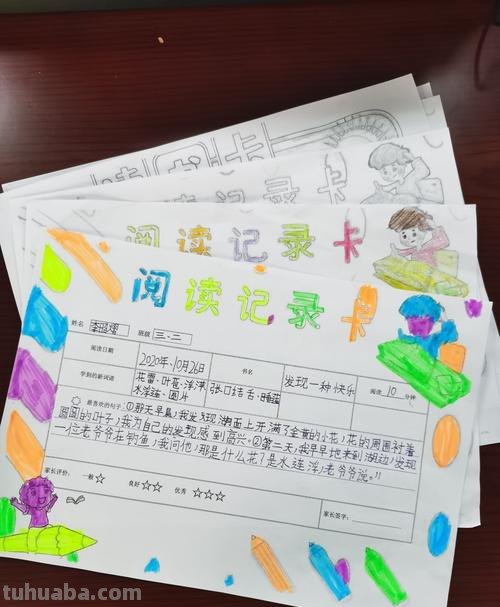 阅读记录卡
阅读记录卡
阅读记录卡
姓名 班级 三·二
阅读日期 2020年10月26日 书名 发现一种快乐 阅读 10 分钟
学到的新词语 花蕾·叶茎·浮漂 张口结舌·睡莲
水浮莲·圆片
最喜欢的句子: ①那天早晨,我发现湖面上开满了金黄的小花,花的周围衬着
圆圆的叶子,我为自己的发现感到高兴。②第二天,我早早地来到湖边,发现
一位老爷爷在钓鱼,我问他,那是什么花?是水连浮,老爷爷说。”
家长评价: 一般☆ 良好☆☆ 优秀☆☆☆
家长签字:
tuhuaba.com